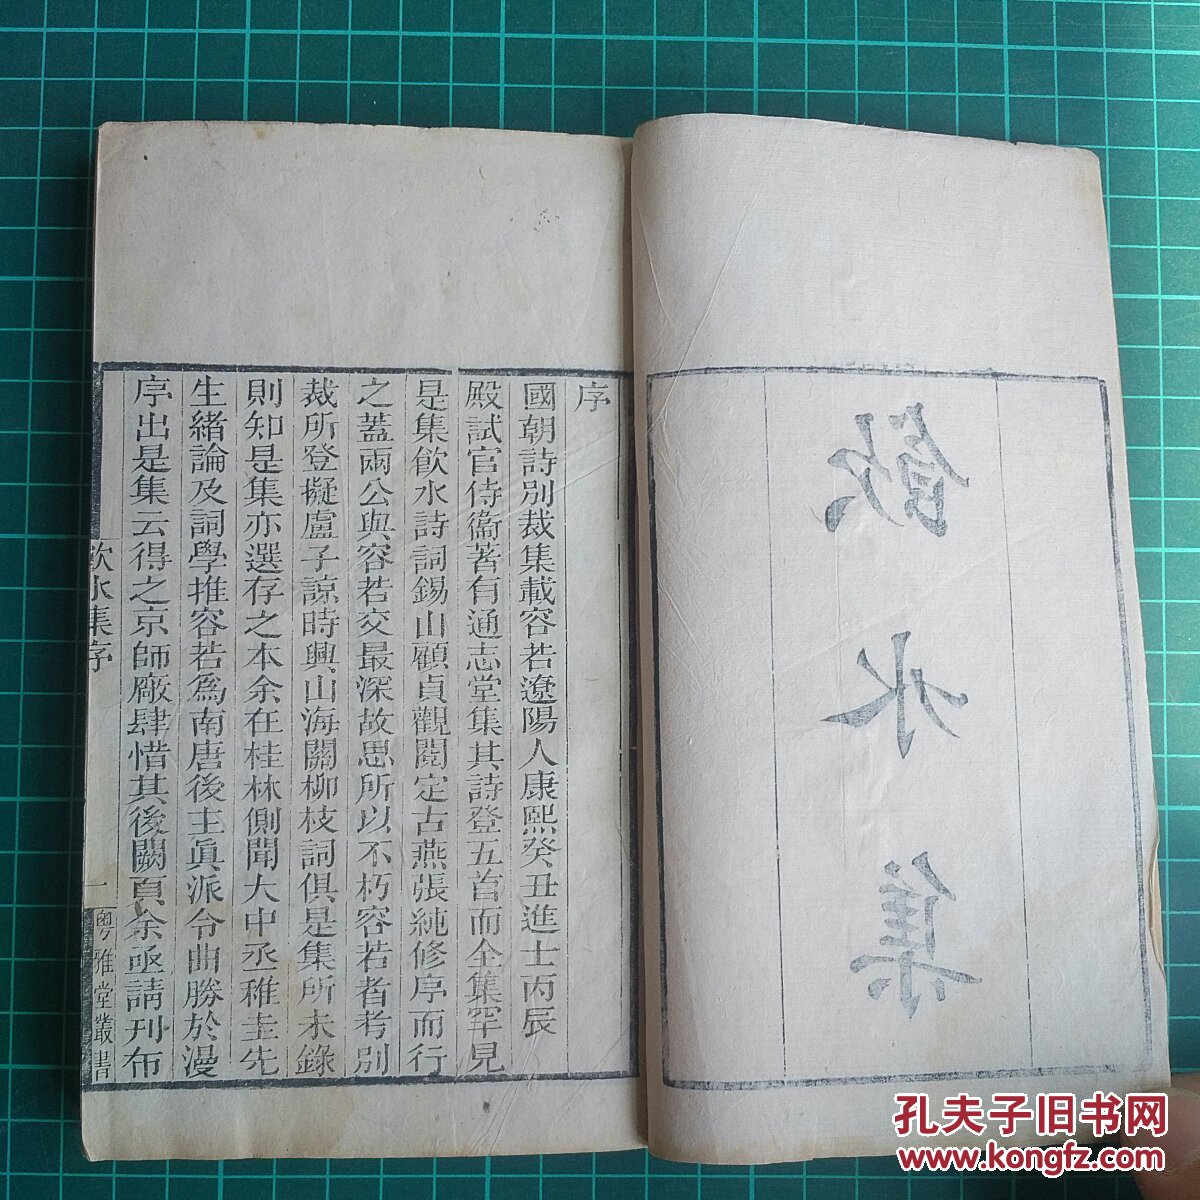 飲水集
序
國朝詩別裁集載容若遼陽人康熙癸丑進士丙辰
殿試官侍衞著有通志堂集其詩登五首而全集罕見
是集飮水詩詞錫山顧貞觀閱定古燕張純修序而行
之蓋兩公與容若交最深故思所以不朽容若者考別
裁所登擬盧子諒時興山海關柳枝詞俱是集所未錄
則知是集亦選存之本余在桂林側聞大中丞稚圭先
生緒論及詞學推容若爲南唐後主眞派令曲勝於漫
序出是集云得之京師廠肆惜其後闕頁余亟請刋布
飮水集序
一
粵雅堂叢書
孔夫子旧书网
www.kongfz.com